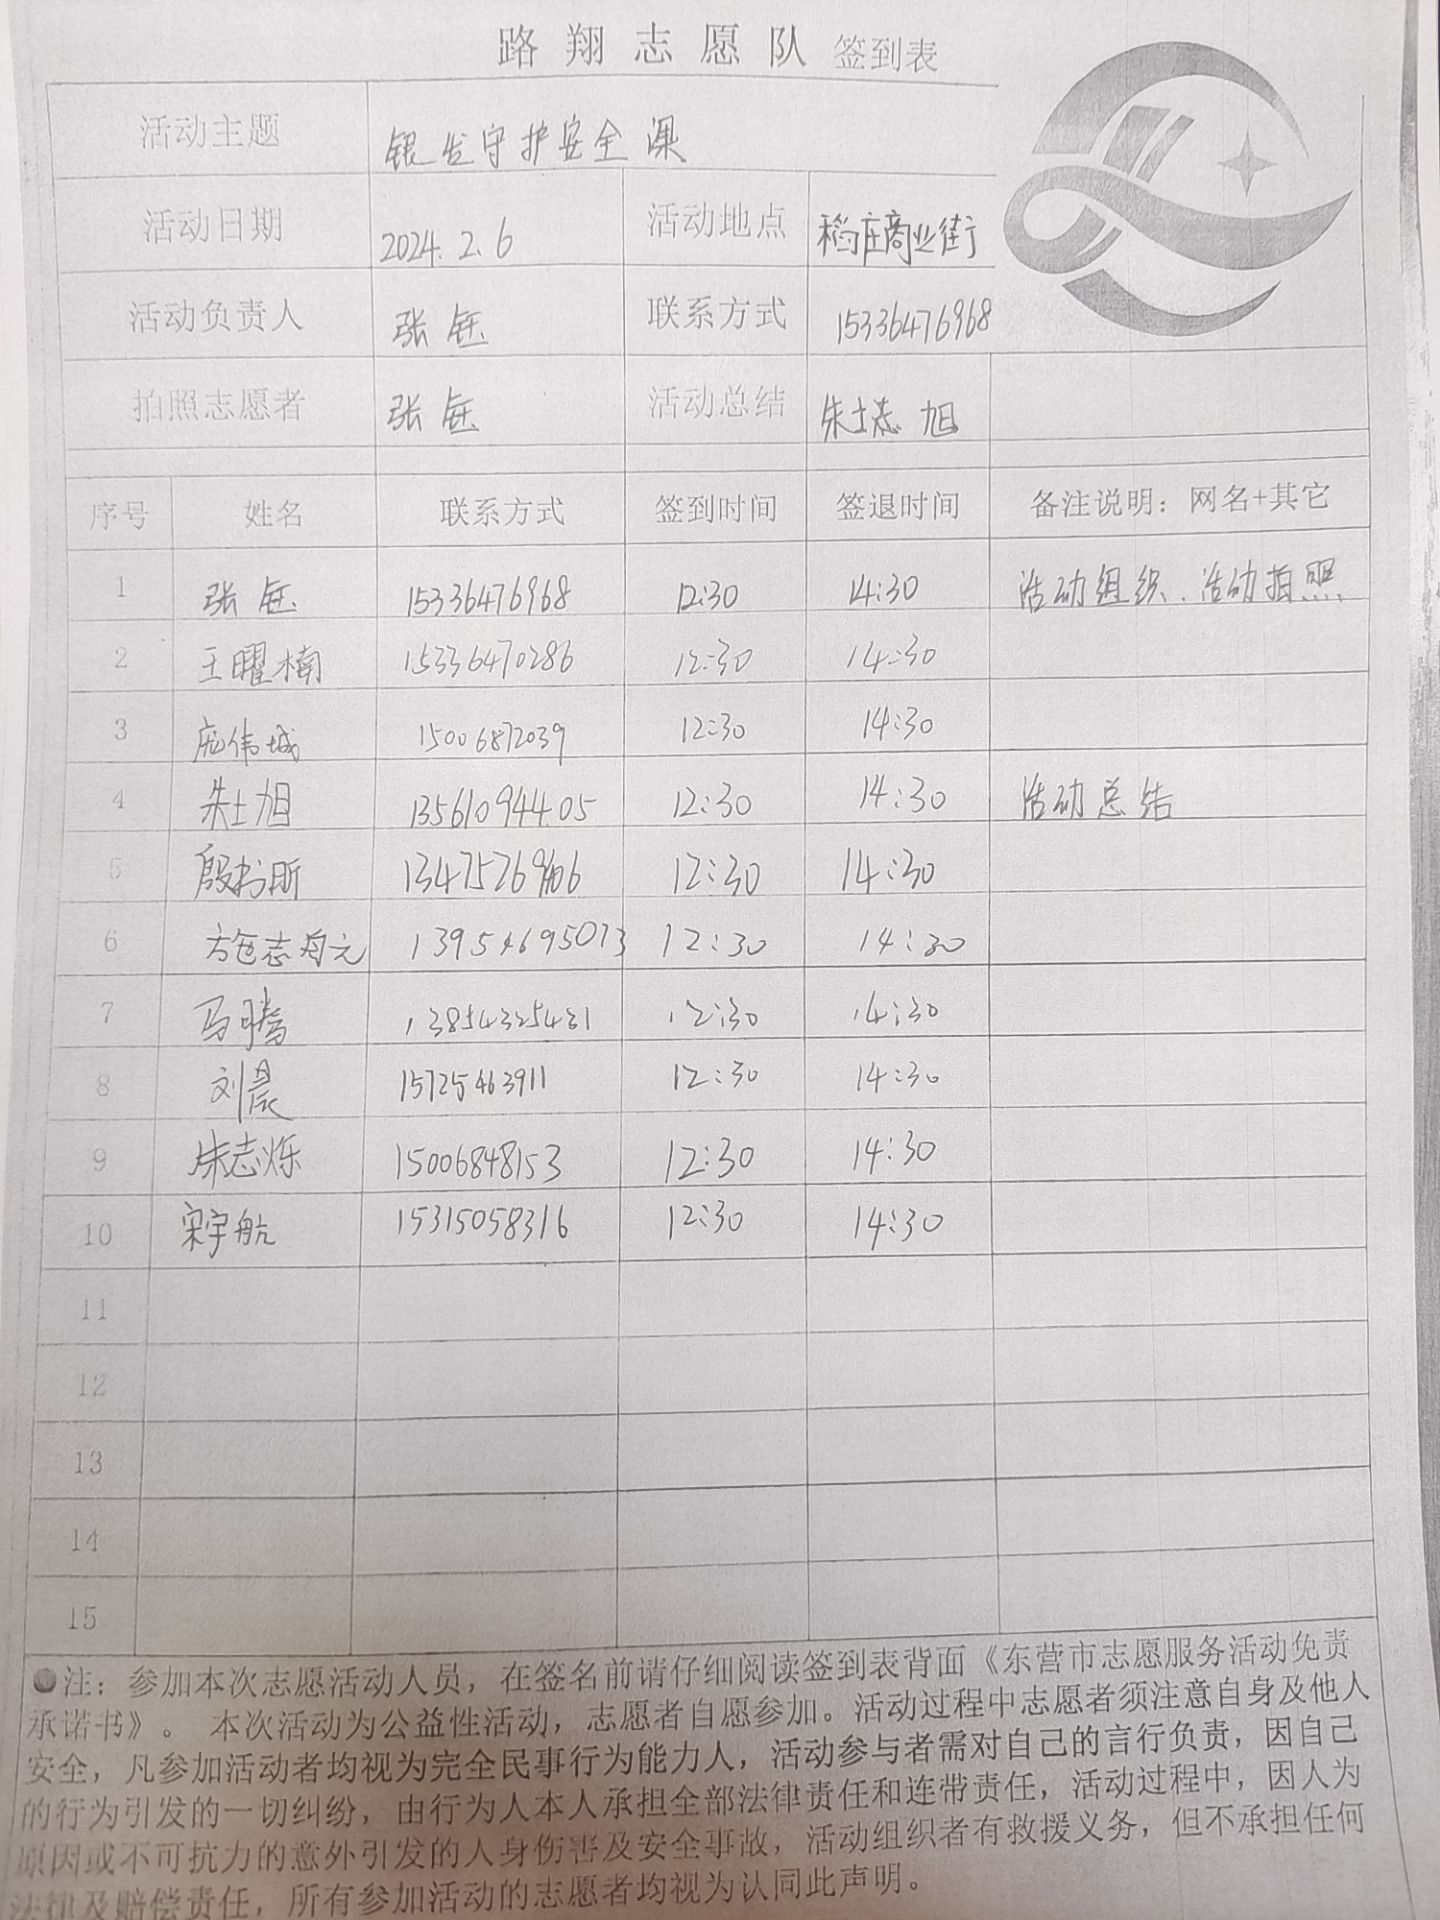 路翔志愿队 签到表
活动主题 银发守护安全课
活动日期 2024.2.6 活动地点 稻庄商业街
活动负责人 张钰 联系方式 15336476968
拍照志愿者 张钰 活动总结 朱士旭
序号 姓名 联系方式 签到时间 签退时间 备注说明：网名+其它
1 张钰 15336476968 12:30 14:30 活动组织、活动拍照
2 王曜楠 15336470286 12:30 14:30
3 庞伟城 15006872039 12:30 14:30
4 朱士旭 13561094405 12:30 14:30 活动总结
5 12:30 14:30
6 13954695073 12:30 14:30
7 马腾 13854325431 12:30 14:30
8 刘晨 15725463911 12:30 14:30
9 朱志烁 15006848153 12:30 14:30
10 宋宇航 15315058316 12:30 14:30
11
12
13
14
15
注：参加本次志愿活动人员，在签名前请仔细阅读签到表背面《东营市志愿服务活动免责
承诺书》。 本次活动为公益性活动，志愿者自愿参加。活动过程中志愿者须注意自身及他人
安全，凡参加活动者均视为完全民事行为能力人，活动参与者需对自己的言行负责，因自己
的行为引发的一切纠纷，由行为人本人承担全部法律责任和连带责任，活动过程中，因人为
原因或不可抗力的意外引发的人身伤害及安全事故，活动组织者有救援义务，但不承担任何
法律及赔偿责任，所有参加活动的志愿者均视为认同此声明。